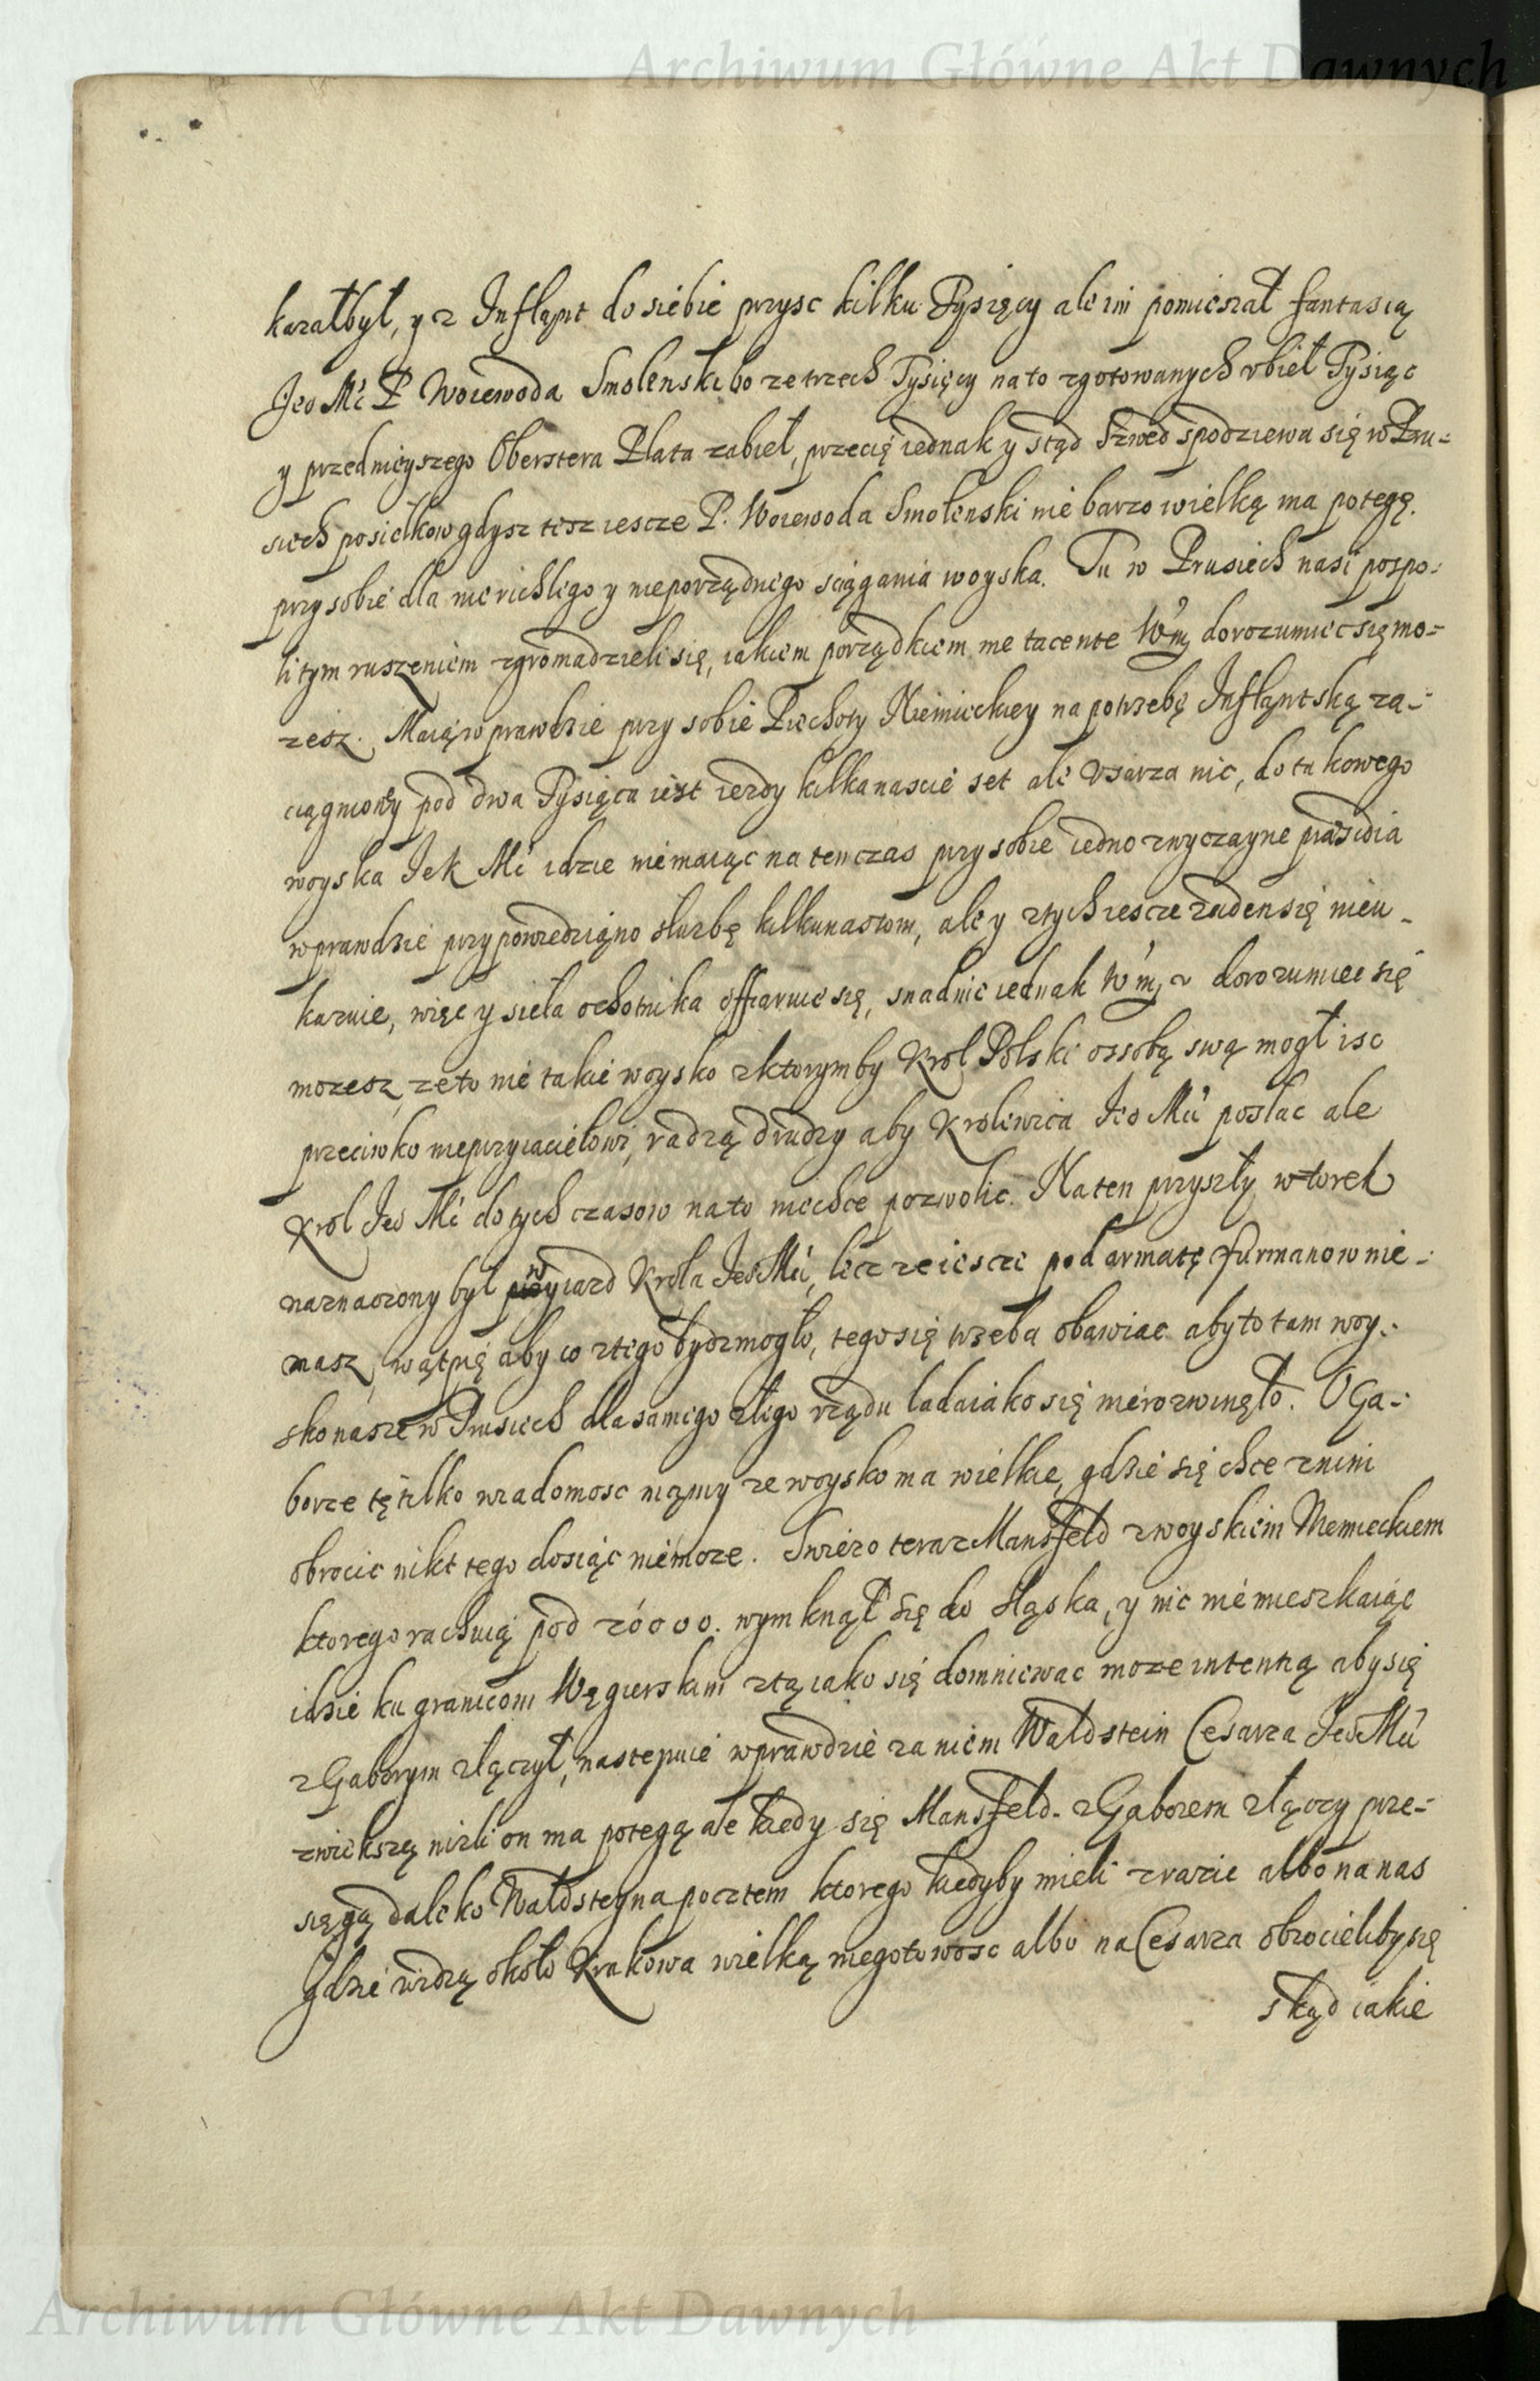 Archiwum Główne Akt Dawnych
kazał był, y z Infląnt do siebie przysc kilku Tysięcy ale im pomieszał fantasią
Jeo Mć P Woiewoda Smolenski bo ze trzech Tysięcy na to zgotowanych vbił Tysiąc
y przednieyszego Oberstera Plata zabieł, przecię iednak y stąd Szwed spodziewa się w Pru-
siech posiełkow gdysz tesz iescze P. Woiewoda Smolenski nie barzo wielką ma potęgę.
przy sobie dla nierichłego y nieporządnego sciągania woyska. Tu w Prusiech nasi pospo-
litym ruszeniem zgromadzieli się, iakiem porządkiem me tacente Wm̃ dorozumiec się mo-
zesz. Maią w prawdzie przy sobie Piechoty Niemieckiey na potrzebę Infląntską za-
ciągnioney pod dwa Tysiąca iest iezdy kilkanascie set ale vsarza nic, do takowego
woyska JeK Mć idzie niemaiąc na ten czas przy sobie iedno zwyczayne præsidia
wprawdzie przypowiedziąno słuzbę kilkunastom, ale y z tych iescze zaden się nieu-
kazuie, więc y sieła ochotnika offiaruie się, snadnie iednak Wm̃ z dorozumiec się
mozesz, ze to nie takie woysko z ktorym by Krol Polski ossobą swą mogł isc
przeciwko nieprzyiacielowi, radzą drudzy aby Krolewica Jeo Mći posłac ale
Krol Jeo Mć do tych czasow na to niechce pozwolic. Na ten przyszły wtorek
naznaczony był wyiazd Krola Jeo Mći, lecz ze iescze pod armatę furmanow nie-
masz, wątpię aby co z tego bydz mogło, tego się trzeba obawiac aby to tam woy-
sko nasze w Prusiech dla samego złego rządu ladaiako się nierozwinęło. O Ga-
borze tę tilko wiadomosc mąmy ze woysko ma wielkie, gdzie się chce z nim
obrocic nikt tego dosiąc niemoze. Swiezo teraz Mansfeld z woyskiem Niemieckiem
ktorego rachuią pod 26000. wymknął się do Sląska, y nic nie mieszkaiąc
idzie ku granicom Węgierskim z tą iako się domniewac moze intentią aby się
z Gaborym złączył, nastepuie wprawdzie za niem Waldstein Cesarza Jeo Mći
z wiekszą nizli on ma potegą ale kiedy się Mansfeld z Gaborem złączy prze-
sięgą daleko Waldsteyna pocztem ktorego kiedyby mieli zrazic albo na nas
gdzie widzą około Krakowa wielką niegotowosc albo na Cesarza obrocieliby się
skąd iakie
Archiwum Główne Akt Dawnych